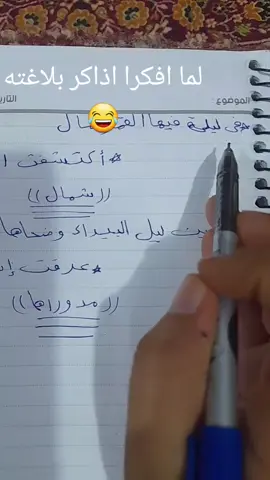 لما افكرا اذاكر بلاغته
الموضوع
في ليلة فيها القمر مال
أكتشفت
((شمال))
ليل البيداء وضحاها
عرفت
((مدوراها))